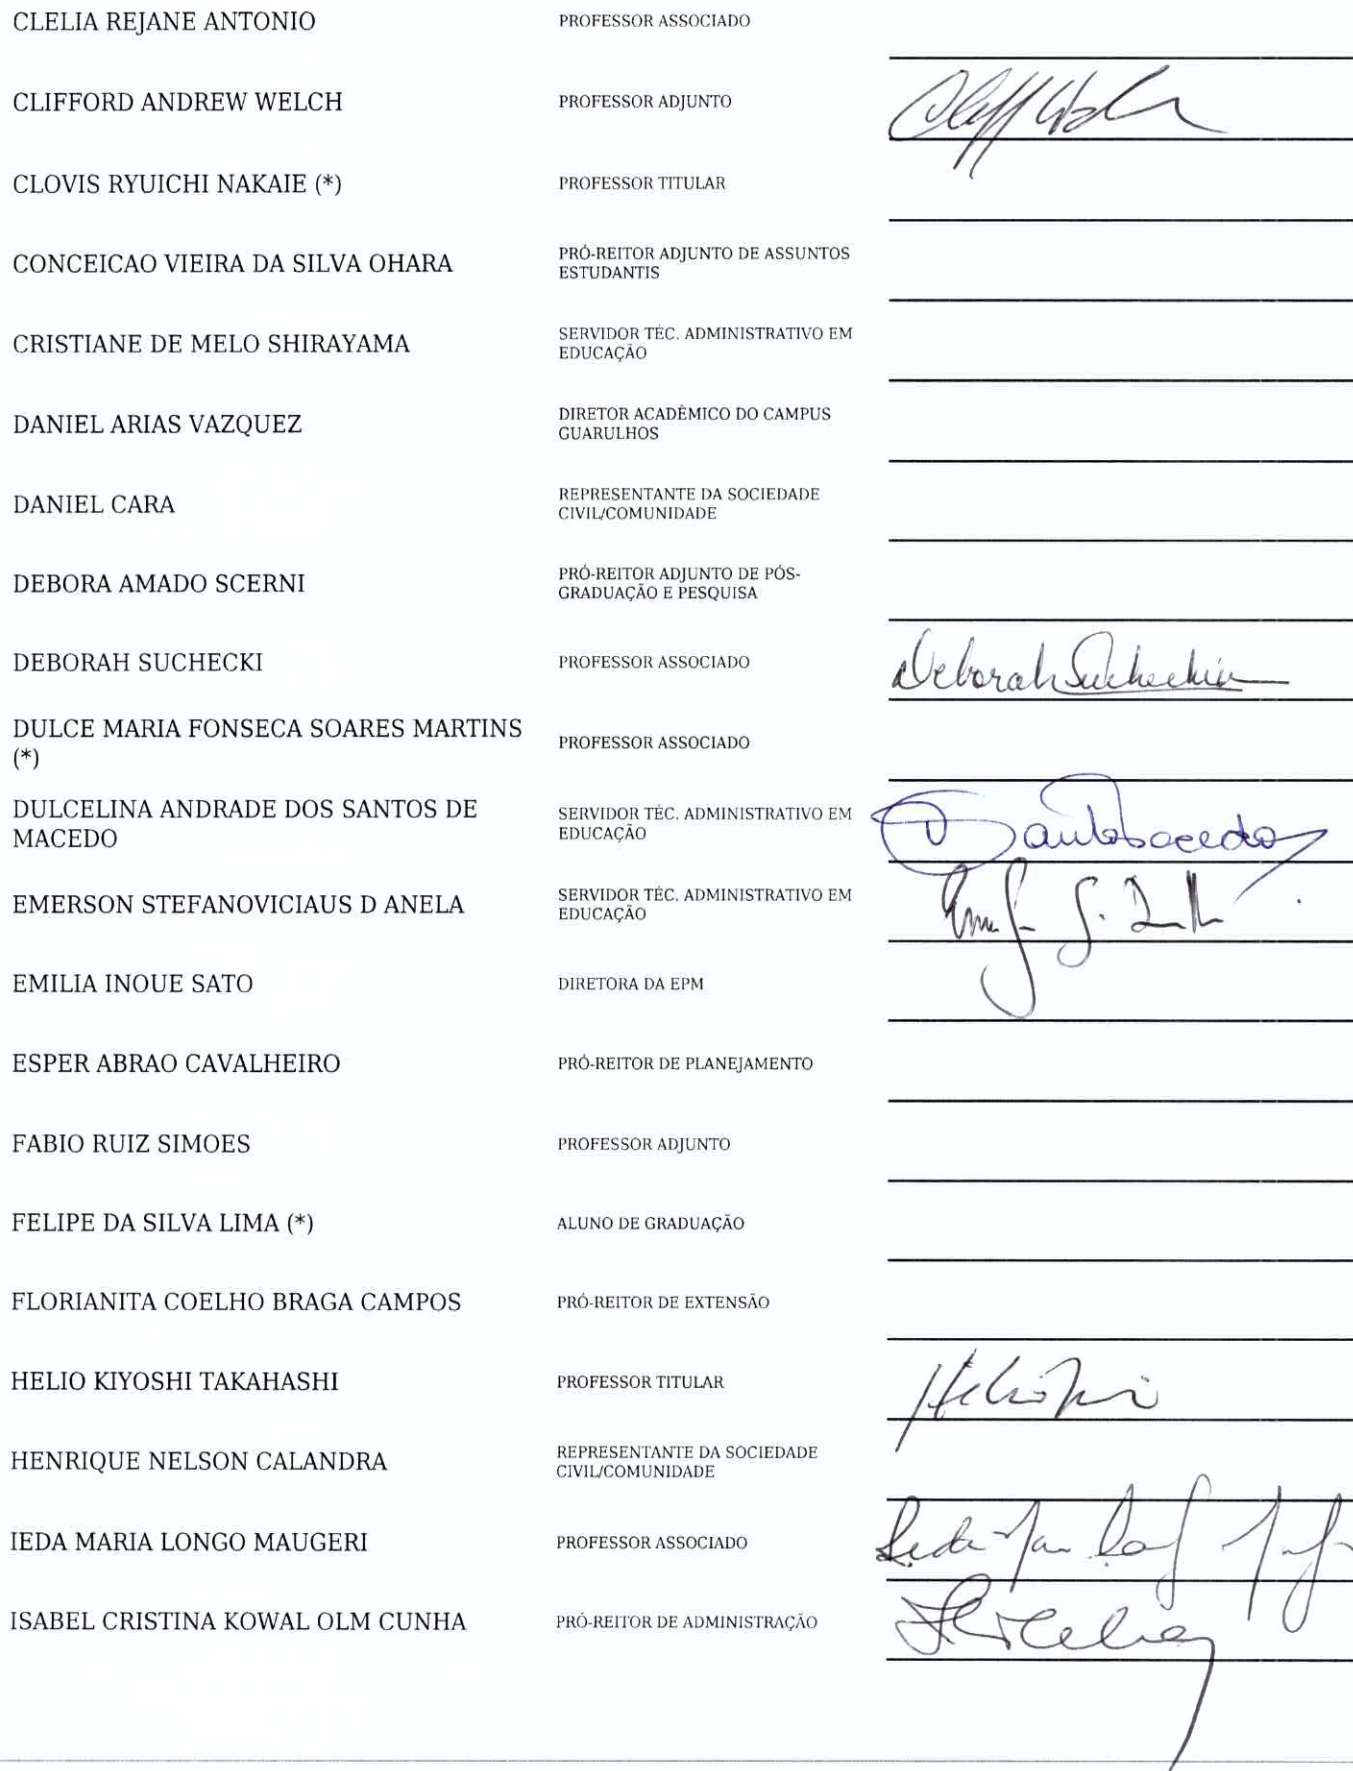 CLELIA REJANE ANTONIO PROFESSOR ASSOCIADO
CLIFFORD ANDREW WELCH PROFESSOR ADJUNTO
CLOVIS RYUICHI NAKAIE (*) PROFESSOR TITULAR
CONCEICAO VIEIRA DA SILVA OHARA PRÓ-REITOR ADJUNTO DE ASSUNTOS
ESTUDANTIS
CRISTIANE DE MELO SHIRAYAMA SERVIDOR TÉC. ADMINISTRATIVO EM
EDUCAÇÃO
DANIEL ARIAS VAZQUEZ DIRETOR ACADÊMICO DO CAMPUS
GUARULHOS
DANIEL CARA REPRESENTANTE DA SOCIEDADE
CIVIL/COMUNIDADE
DEBORA AMADO SCERNI PRÓ-REITOR ADJUNTO DE PÓS-
GRADUAÇÃO E PESQUISA
DEBORAH SUCHECKI PROFESSOR ASSOCIADO Deborah Suchecki
DULCE MARIA FONSECA SOARES MARTINS
(*) PROFESSOR ASSOCIADO
DULCELINA ANDRADE DOS SANTOS DE
MACEDO SERVIDOR TÉC. ADMINISTRATIVO EM
EDUCAÇÃO
EMERSON STEFANOVICIAUS D ANELA SERVIDOR TÉC. ADMINISTRATIVO EM
EDUCAÇÃO
EMILIA INOUE SATO DIRETORA DA EPM
ESPER ABRAO CAVALHEIRO PRÓ-REITOR DE PLANEJAMENTO
FABIO RUIZ SIMOES PROFESSOR ADJUNTO
FELIPE DA SILVA LIMA (*) ALUNO DE GRADUAÇÃO
FLORIANITA COELHO BRAGA CAMPOS PRÓ-REITOR DE EXTENSÃO
HELIO KIYOSHI TAKAHASHI PROFESSOR TITULAR
HENRIQUE NELSON CALANDRA REPRESENTANTE DA SOCIEDADE
CIVIL/COMUNIDADE
IEDA MARIA LONGO MAUGERI PROFESSOR ASSOCIADO
ISABEL CRISTINA KOWAL OLM CUNHA PRÓ-REITOR DE ADMINISTRAÇÃO